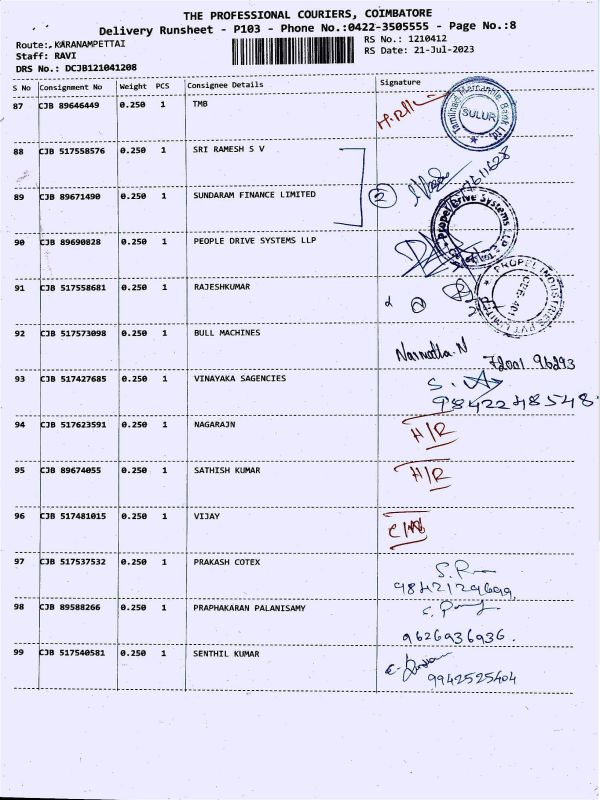 THE PROFESSIONAL COURIERS, COIMBATORE
Delivery Runsheet - P103 - Phone No.:0422-3505555 - Page No.:8
Route:.KARANAMPETTAI
RS No.: 1210412
Staff: RAVI
RS Date: 21-Jul-2023
DRS No.: DCJB121041208
S No Consignment No Weight PCS Consignee Details Signature
87 CJB 89646449 0.250 1 TMB
Tamilnad Mercantile Bank Ltd.
SULUR
88 CJB 517558576 0.250 1 SRI RAMESH S V
89 CJB 89671490 0.250 1 SUNDARAM FINANCE LIMITED
2
Propel Drive Systems LLP
90 CJB 89690828 0.250 1 PEOPLE DRIVE SYSTEMS LLP
PROPEL INDUSTRIES PVT LIMITED
91 CJB 517558681 0.250 1 RAJESHKUMAR
92 CJB 517573098 0.250 1 BULL MACHINES
72001 96293
93 CJB 517427685 0.250 1 VINAYAKA SAGENCIES
9842248548
94 CJB 517623591 0.250 1 NAGARAJN
H/R
95 CJB 89674055 0.250 1 SATHISH KUMAR
H/R
96 CJB 517481015 0.250 1 VIJAY
97 CJB 517537532 0.250 1 PRAKASH COTEX
9842129699
98 CJB 89588266 0.250 1 PRAPHAKARAN PALANISAMY
9626936936.
99 CJB 517540581 0.250 1 SENTHIL KUMAR
9942525404